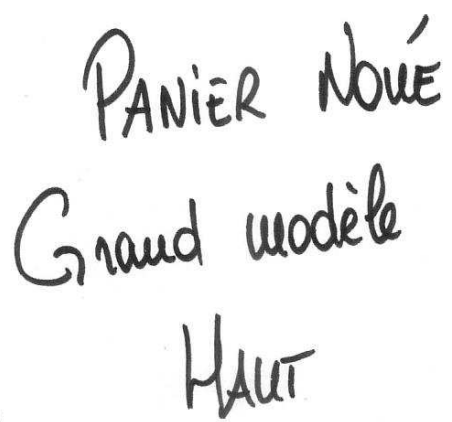 PANiER NOUÉ
Grand modèle
HAUT